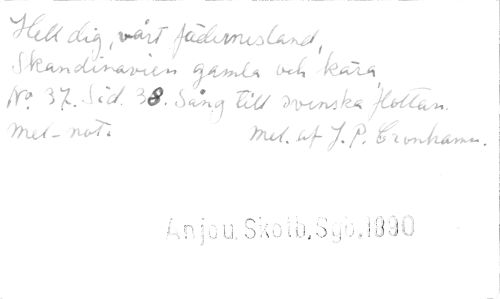 Hell dig, vårt fädernesland,
Skandinavien gamla och kära,
No 37. Sid. 38. Sång till svenska flottan.
mel-not. mel. af J. P. Cronhamn.
Anjou, Skolb. Sgb. 1890